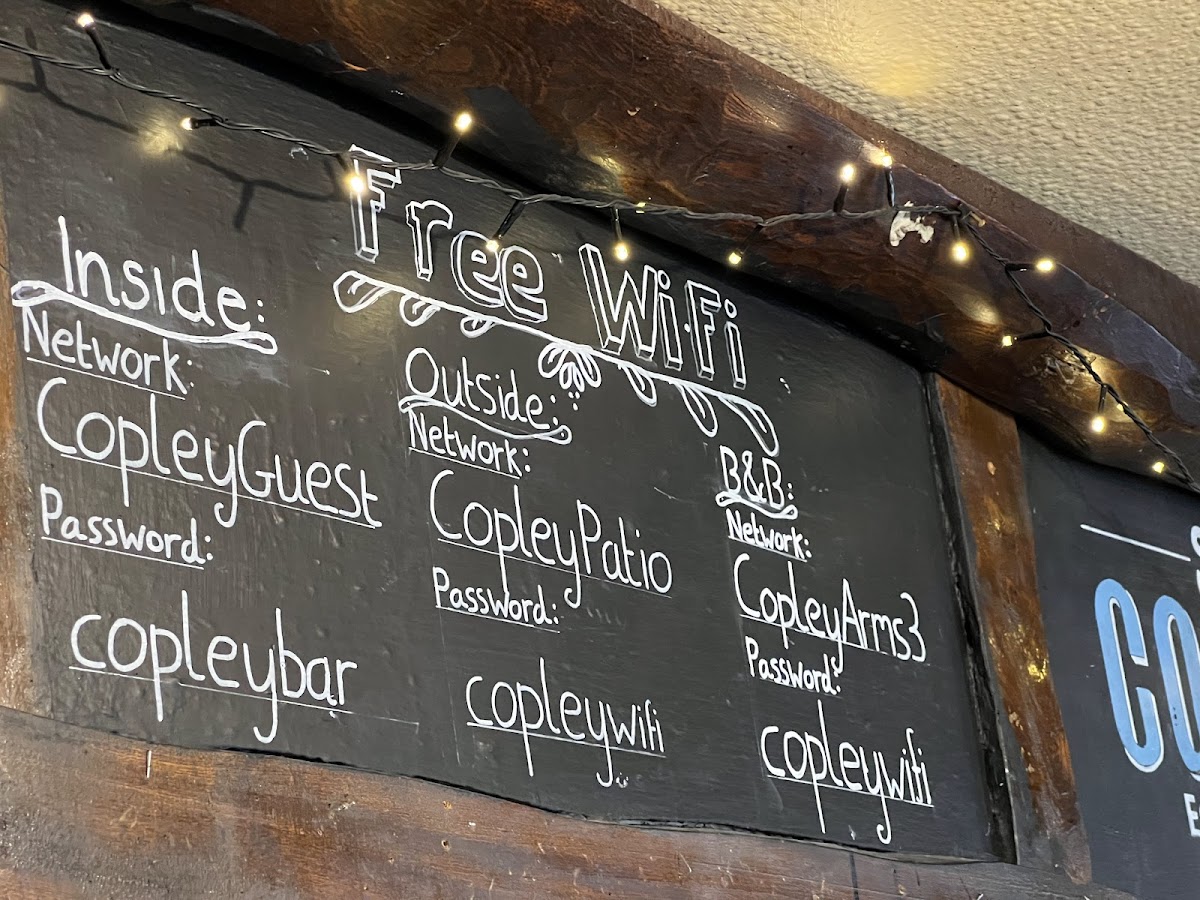 Free WiFi
Inside:
Network:
CopleyGuest
Password:
copleybar
Outside:
Network:
CopleyPatio
Password:
copleywifi
B&B:
Network:
CopleyArms3
Password:
copleywifi